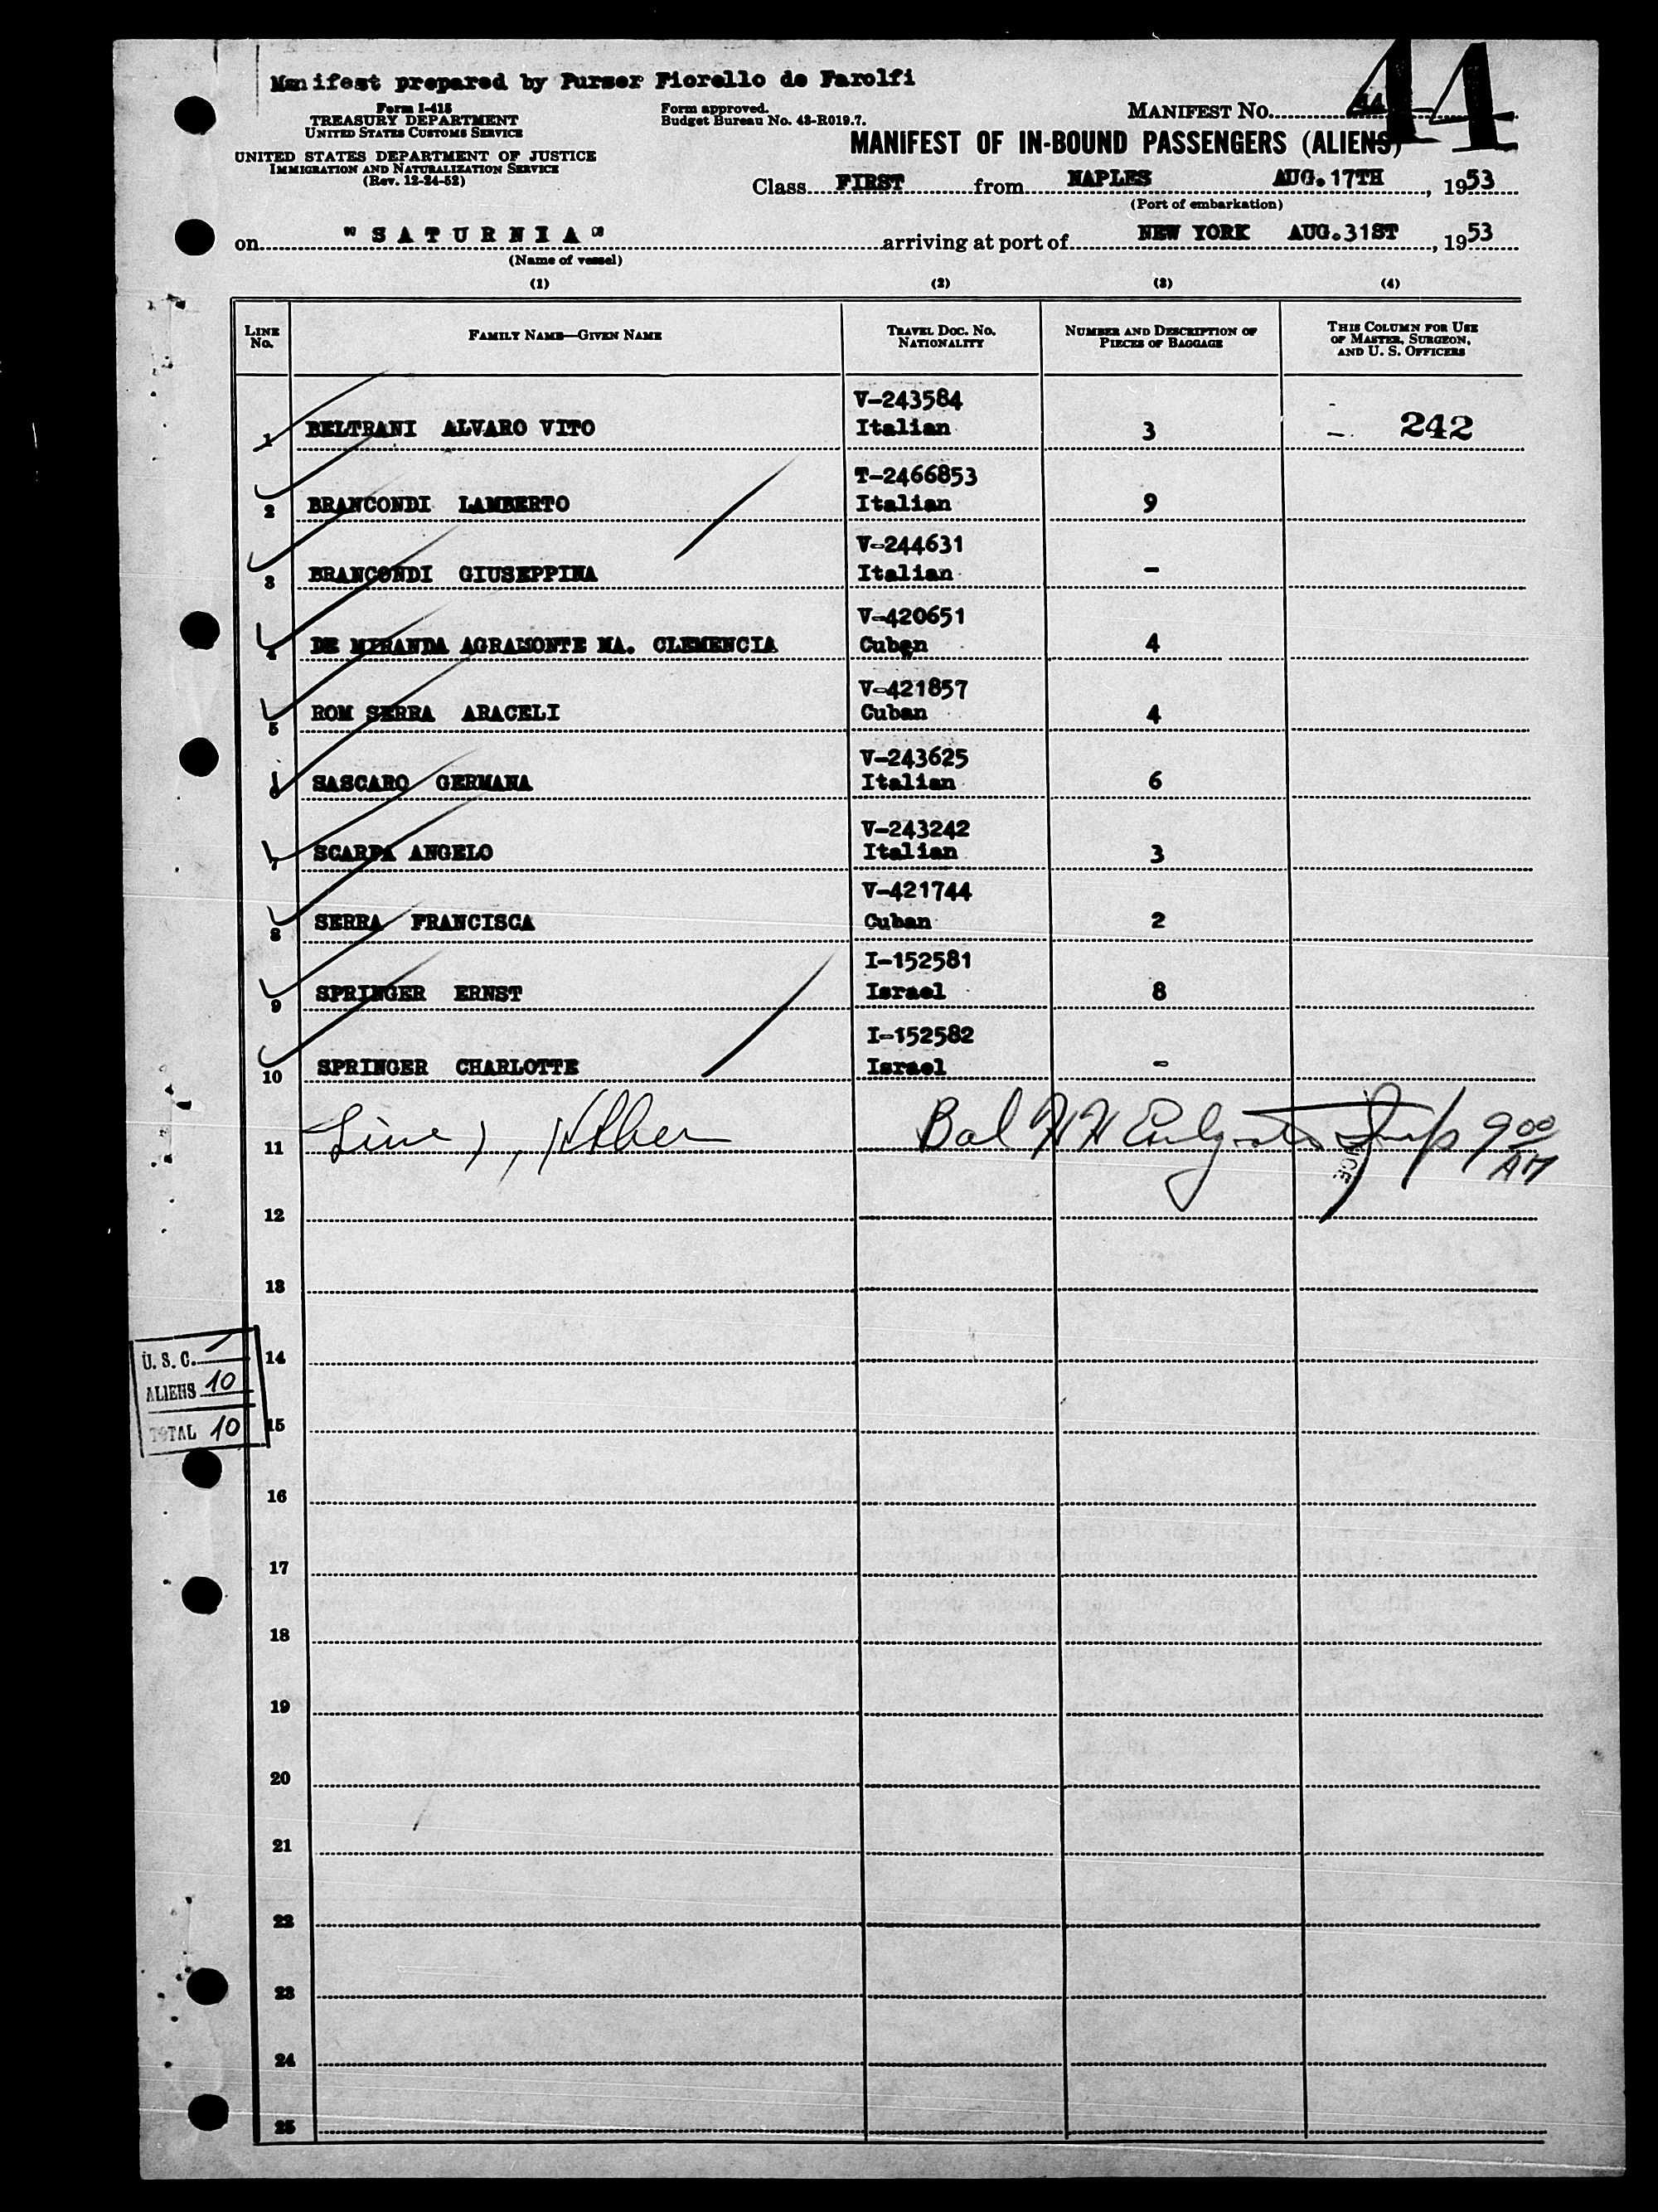 Manifest prepared by Purser Fiorello de Farolfi
Form I-415
TREASURY DEPARTMENT
UNITED STATES CUSTOMS SERVICE
UNITED STATES DEPARTMENT OF JUSTICE
IMMIGRATION AND NATURALIZATION SERVICE
(Rev. 12-24-52)
Form approved.
Budget Bureau No. 43-R019.7.
MANIFEST No. 44
44
MANIFEST OF IN-BOUND PASSENGERS (ALIENS)
Class FIRST from NAPLES AUG. 17TH, 1953
(Port of embarkation)
on "SATURNIA" arriving at port of NEW YORK AUG. 31ST, 1953
(Name of vessel)
(1) (2) (3) (4)
LINE No. FAMILY NAME—GIVEN NAME TRAVEL DOC. NO. NATIONALITY NUMBER AND DESCRIPTION OF PIECES OF BAGGAGE THIS COLUMN FOR USE OF MASTER, SURGEON, AND U. S. OFFICERS
V-243584
1 BELTRANI ALVARO VITO Italian 3 242
T-2466853
2 BRANCONDI LAMBERTO Italian 9
V-244631
3 BRANCONDI GIUSEPPINA Italian -
V-420651
4 DE MIRANDA AGRAMONTE MA. CLEMENCIA Cuban 4
V-421857
5 ROM SERRA ARACELI Cuban 4
V-243625
6 SASCARO GERMANA Italian 6
V-243242
7 SCARPA ANGELO Italian 3
V-421744
8 SERRA FRANCISCA Cuban 2
I-152581
9 SPRINGER ERNST Israel 8
I-152582
10 SPRINGER CHARLOTTE Israel -
11 Line 1, Bal 9 00 AM
12
13
U. S. C.
14
ALIENS 10
15
TOTAL 10
16
17
18
19
20
21
22
23
24
25